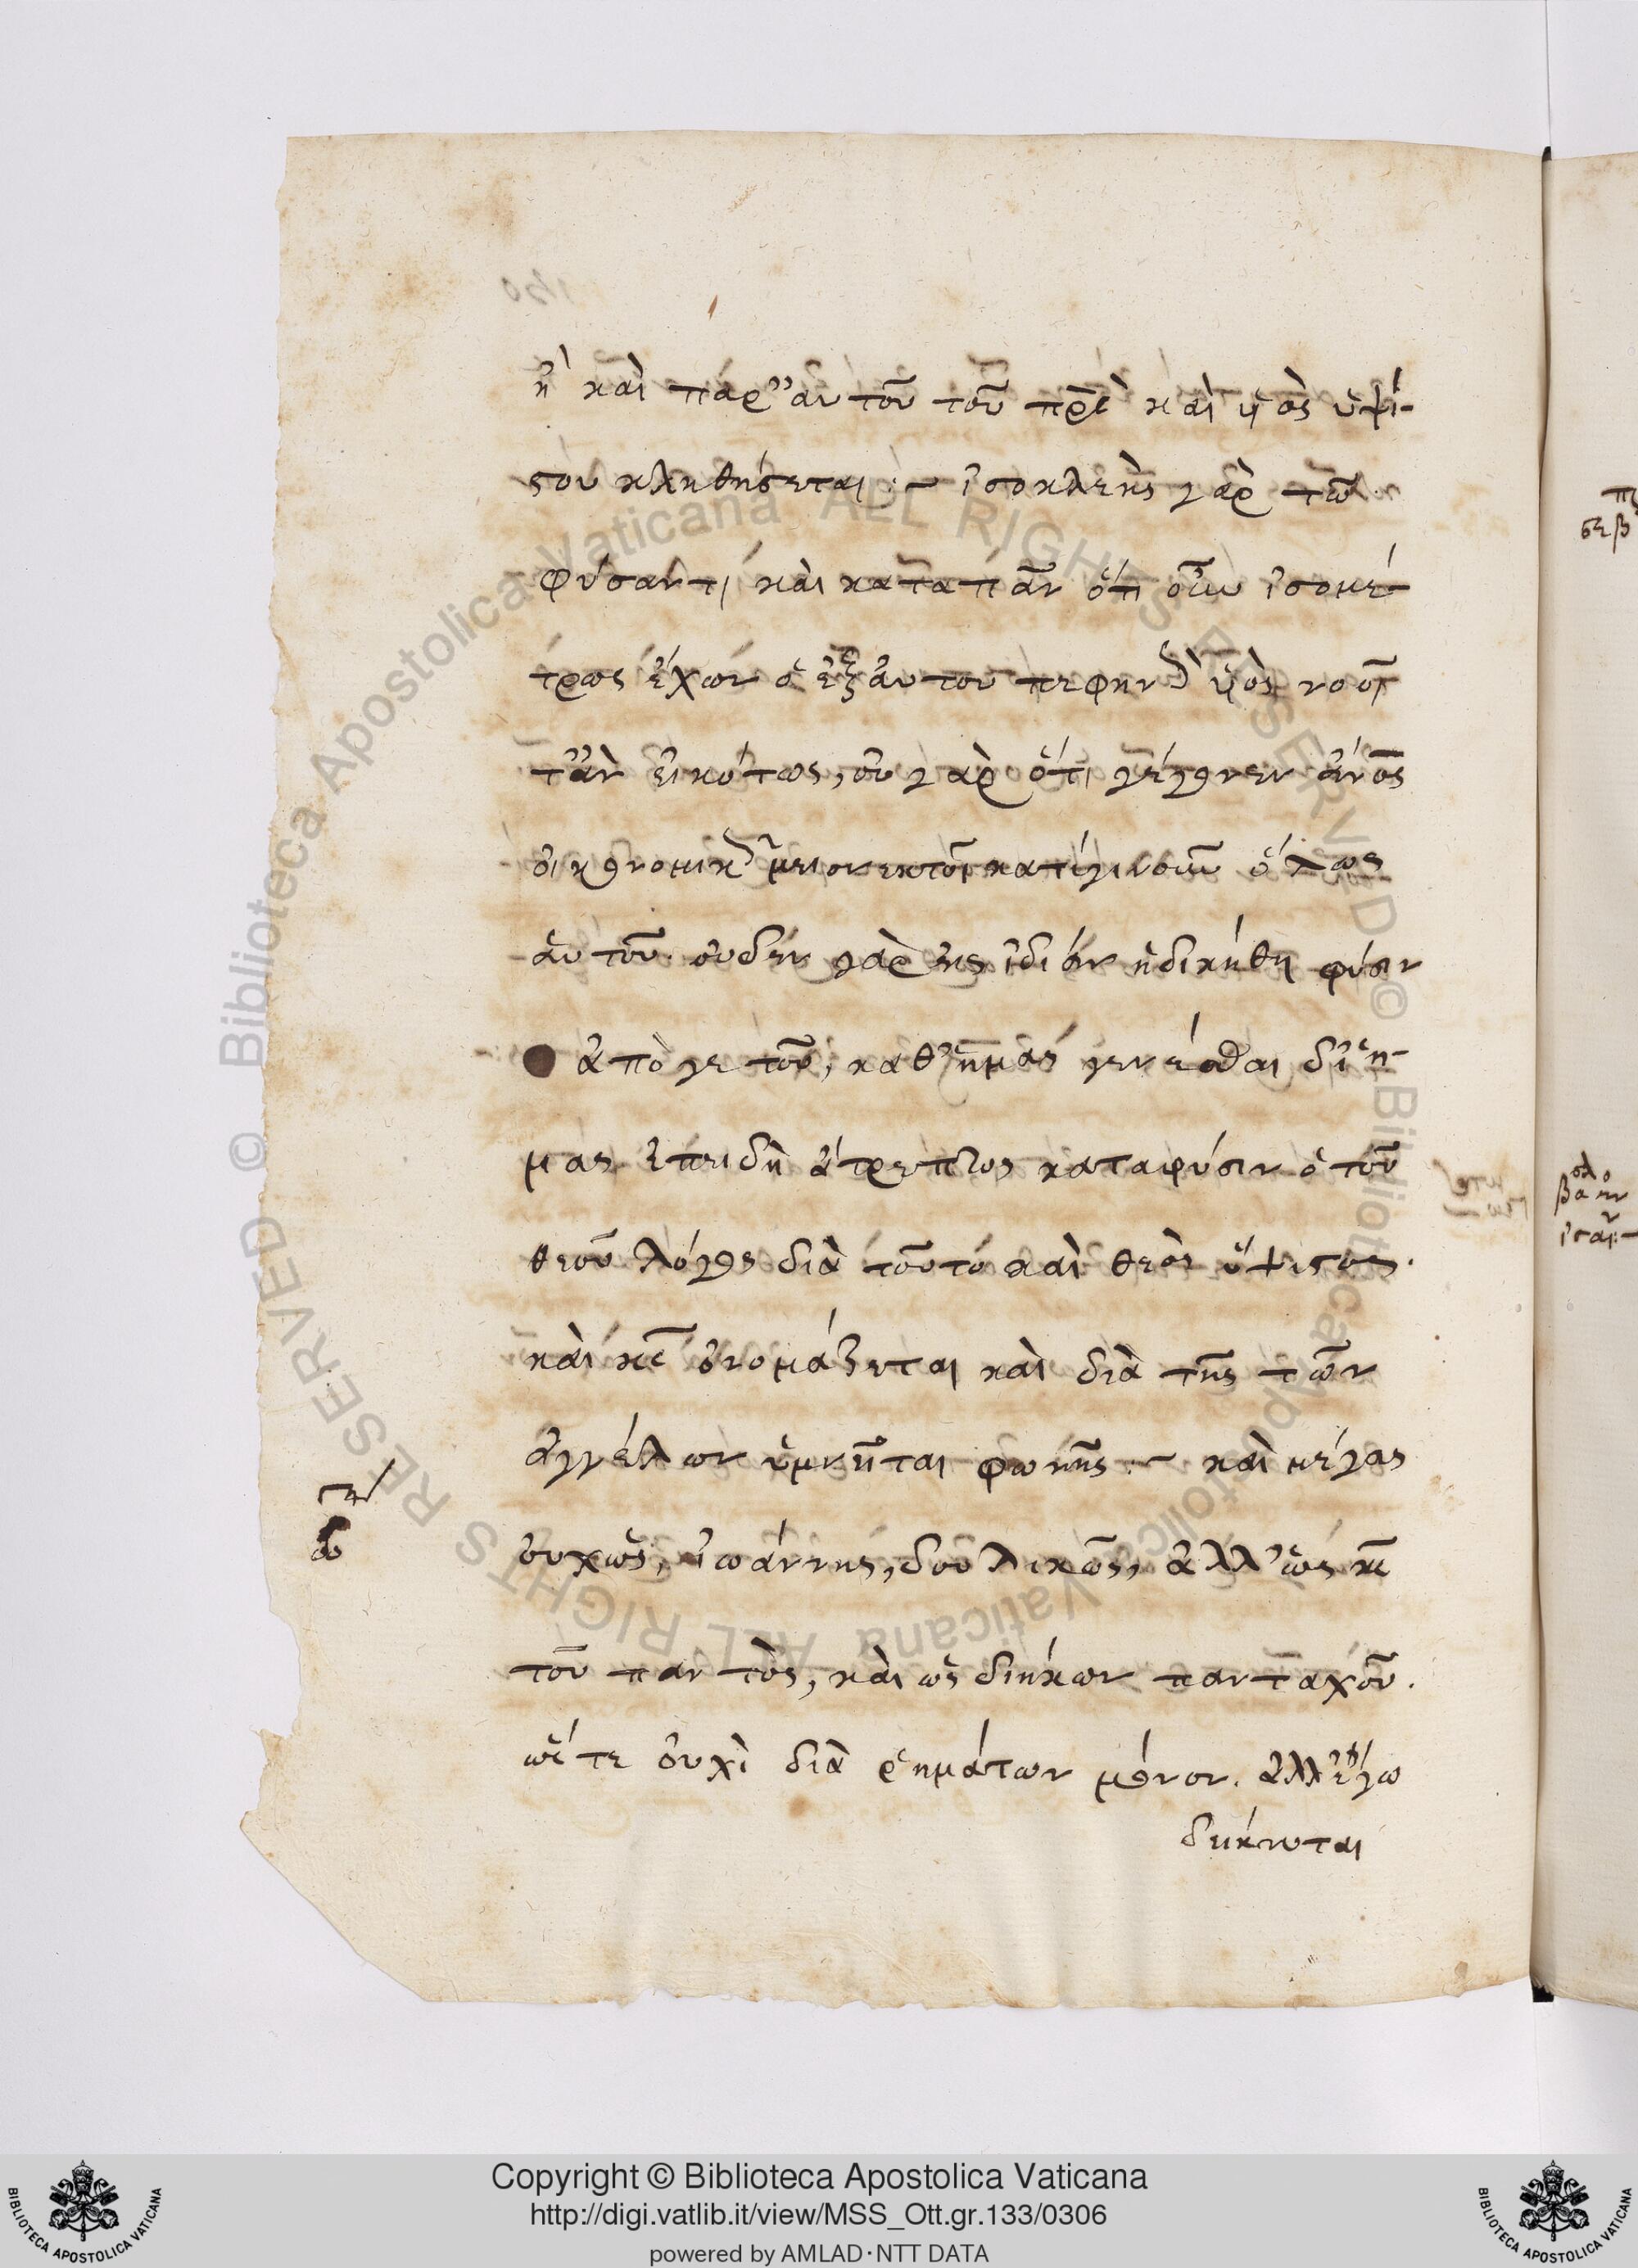 ἢ καὶ παρ' αὐτοῦ τοῦ πρς καὶ υἱὸς ὑψί-
στου κληθήσεται :~ ἰσοκλεὴς γὰρ τῶ
φύσαντι καὶ κατὰ πᾶν ὁτιοῦν ἰσομέ-
τρως ἔχων ὁ ἐξ αὐτοῦ πεφηνὼς υἱὸς νοοῖ
τ' ἂν εἰκότως, οὐ γὰρ ὅτι γέγονεν ἄνος
οἰκονομικῶς μειονεκτοῖ κατιγινοῦν ὅλως
αὐτοῦ. οὐδὲν γὰρ εἰς ἰδίαν ἠδικήθη φύσιν
ἀπό γε τοῦ, καθ' ἡμᾶς γενέσθαι δι' ἡ-
μᾶς ἐπειδὴ ἄτρεπτος κατὰ φύσιν ὁ τοῦ
θεοῦ λόγος διὰ τοῦτο καὶ θεὸς ὕψιστος.
καὶ κς ὀνομάζεται καὶ διὰ τῆς τῶν
ἀγγέλων ὑμνῆται φωνῆς :~ καὶ μέγας
οὐχ ὡς, ἰωάννης, δουλικῶς, ἀλλ' ὡς κς
τοῦ παντὸς, καὶ ὡς διήκων πανταχοῦ.
ὥστε οὐχὶ διὰ ῥημάτων μόνον. ἀλλ' ἔργω
δείκνυται
Copyright © Biblioteca Apostolica Vaticana
http://digi.vatlib.it/view/MSS_Ott.gr.133/0306
powered by AMLAD·NTT DATA
BIBLIOTECA APOSTOLICA VATICANA
BIBLIOTECA APOSTOLICA VATICANA
© Biblioteca Apostolica Vaticana ALL RIGHTS RESERVED © Biblioteca Apostolica Vaticana ALL RIGHTS RESERVED